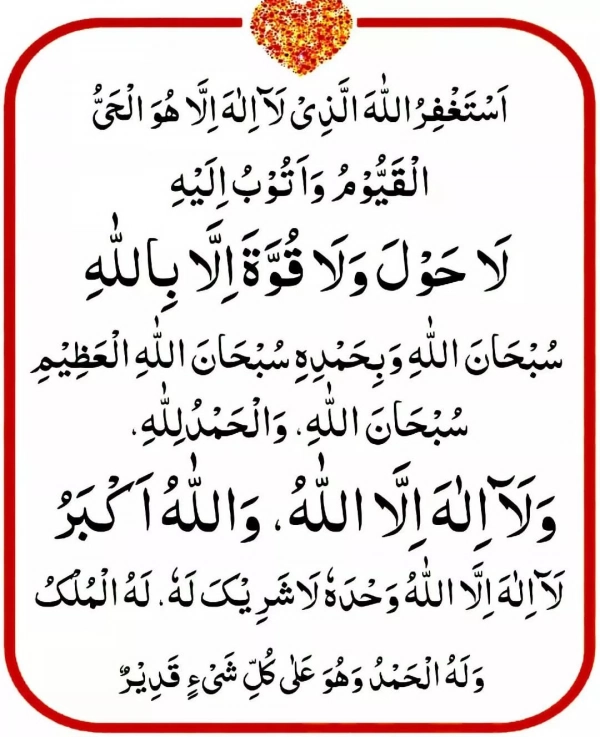 اَسْتَغْفِرُ اللّٰهَ الَّذِیْ لَآ اِلٰهَ اِلَّا هُوَ الْحَیُّ
الْقَیُّوْمُ وَ اَتُوْبُ اِلَیْهِ
لَا حَوْلَ وَلَا قُوَّةَ اِلَّا بِاللّٰهِ
سُبْحَانَ اللّٰهِ وَبِحَمْدِهٖ سُبْحَانَ اللّٰهِ الْعَظِیْمِ
سُبْحَانَ اللّٰهِ، وَالْحَمْدُ لِلّٰهِ،
وَلَآ اِلٰهَ اِلَّا اللّٰهُ، وَاللّٰهُ اَکْبَرُ
لَآ اِلٰهَ اِلَّا اللّٰهُ وَحْدَهٗ لَا شَرِیْکَ لَهٗ، لَهُ الْمُلْکُ
وَلَهُ الْحَمْدُ وَهُوَ عَلٰی کُلِّ شَیْءٍ قَدِیْرٌ